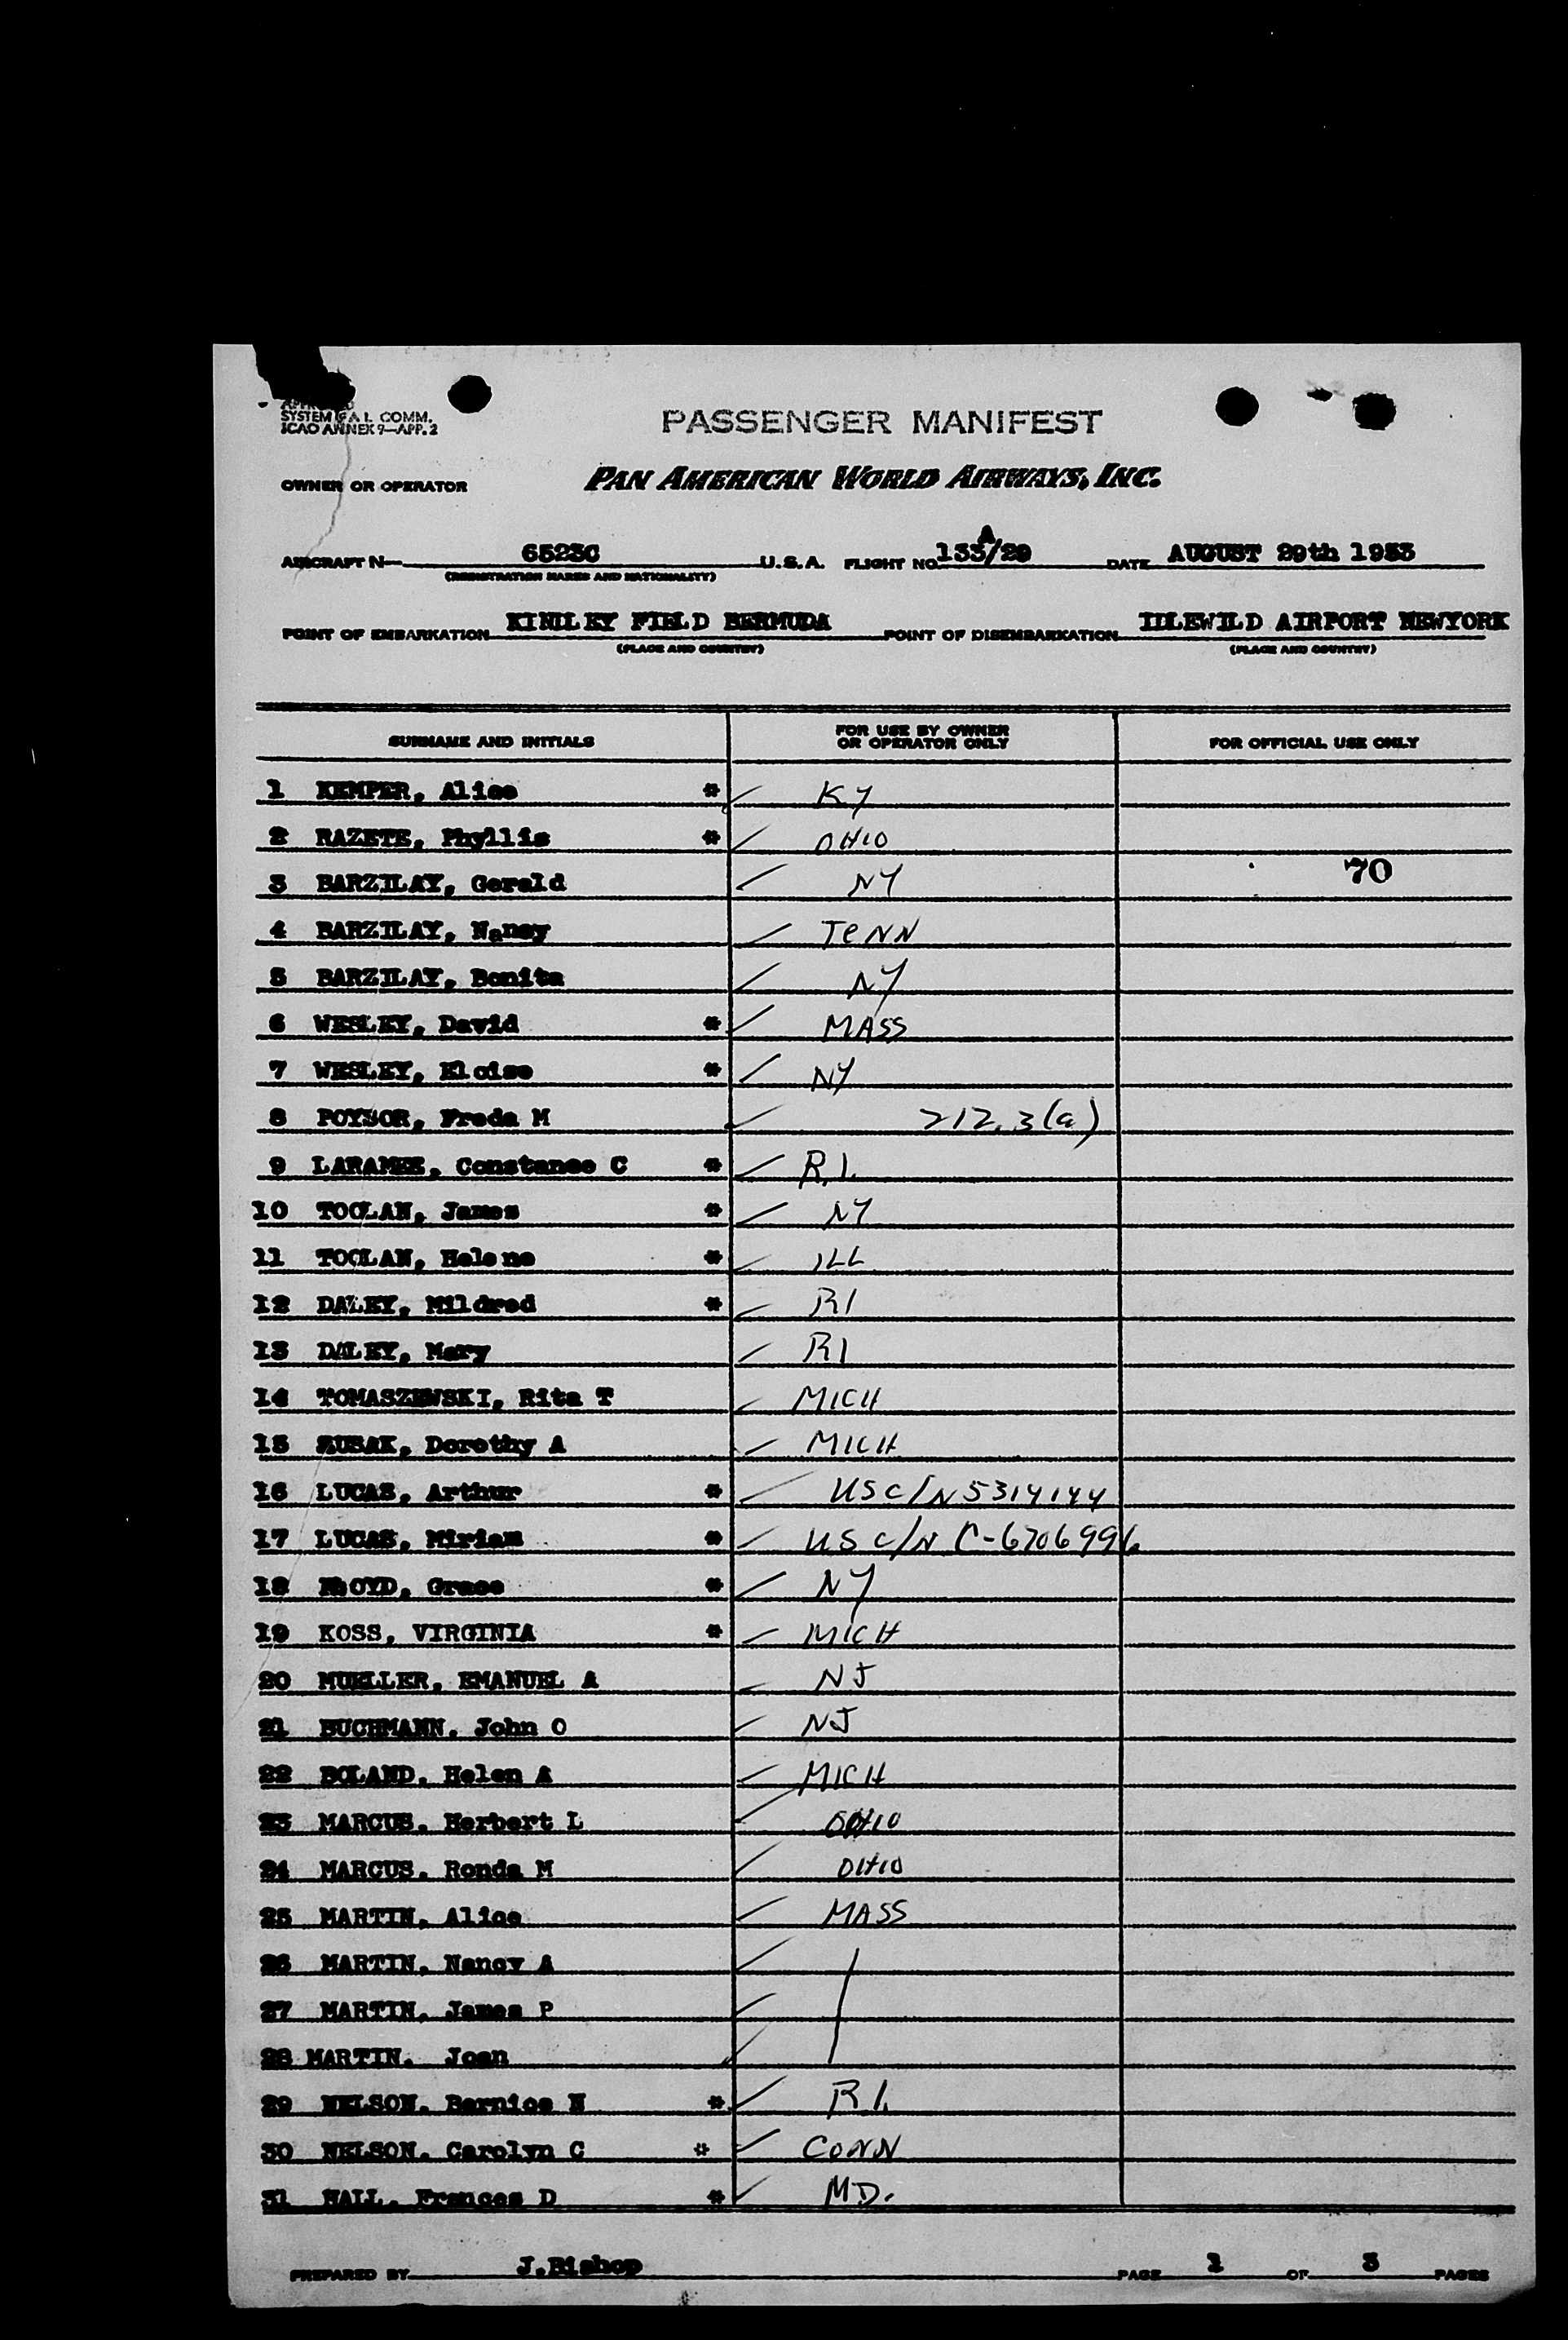 SYSTEM F.A.L. COMM.
ICAO ANNEX 9—APP. 2
PASSENGER MANIFEST
OWNER OR OPERATOR PAN AMERICAN WORLD AIRWAYS, INC.
A
AIRCRAFT N— 6523C U.S.A. FLIGHT NO. 133/29 DATE AUGUST 29th 1953
(REGISTRATION MARKS AND NATIONALITY)
POINT OF EMBARKATION KINDLEY FIELD BERMUDA POINT OF DISEMBARKATION IDLEWILD AIRPORT NEWYORK
(PLACE AND COUNTRY) (PLACE AND COUNTRY)
SURNAME AND INITIALS FOR USE BY OWNER OR OPERATOR ONLY FOR OFFICIAL USE ONLY
1 KEMPER, Alice * KY
2 RAZETE, Phyllis * OHIO
70
3 BARZILAY, Gerald NY
4 BARZILAY, Nancy TENN
5 BARZILAY, Bonita NY
6 WESLEY, David * MASS
7 WESLEY, Eloise * NY
8 POYSOR, Freda M 212.3(a)
9 LARAMEE, Constance C * R.I.
10 TOOLAN, James * NY
11 TOOLAN, Helene * ILL
12 DALEY, Mildred * RI
13 DALEY, Mary RI
14 TOMASZEWSKI, Rita T MICH
15 Dorothy A MICH
16 LUCAS, Arthur * USC/N 5314144
17 LUCAS, Miriam * USC/N C-6706996
18 Grace * NY
19 KOSS, VIRGINIA * MICH
20 MUELLER, EMANUEL A NJ
21 BUCHMANN. John O NJ
22 BOLAND. Helen A MICH
23 MARCUS. Herbert L OHIO
24 MARCUS. Ronda M OHIO
25 MARTIN. Alice MASS
26 MARTIN. Nancy A
27 MARTIN. James P
28 MARTIN. Joan
29 NELSON. Bernice N * R I.
30 NELSON. Carolyn C * CONN
31 Frances D * MD.
PREPARED BY J.Bishop PAGE 1 OF 3 PAGES